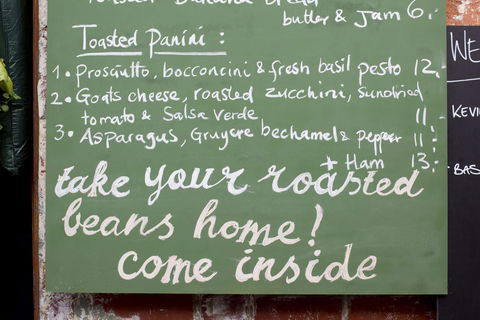 Toasted Banana Bread
butter & Jam 6.
Toasted Panini :
1. Prosciutto, bocconcini & fresh basil pesto 12.
2. Goats cheese, roasted zucchini, sundried
tomato & Salsa verde 11.
3. Asparagus, Gruyere bechamel & pepper 11.
+ Ham 13.
take your roasted
beans home!
come inside
WE
KEVI
BAS